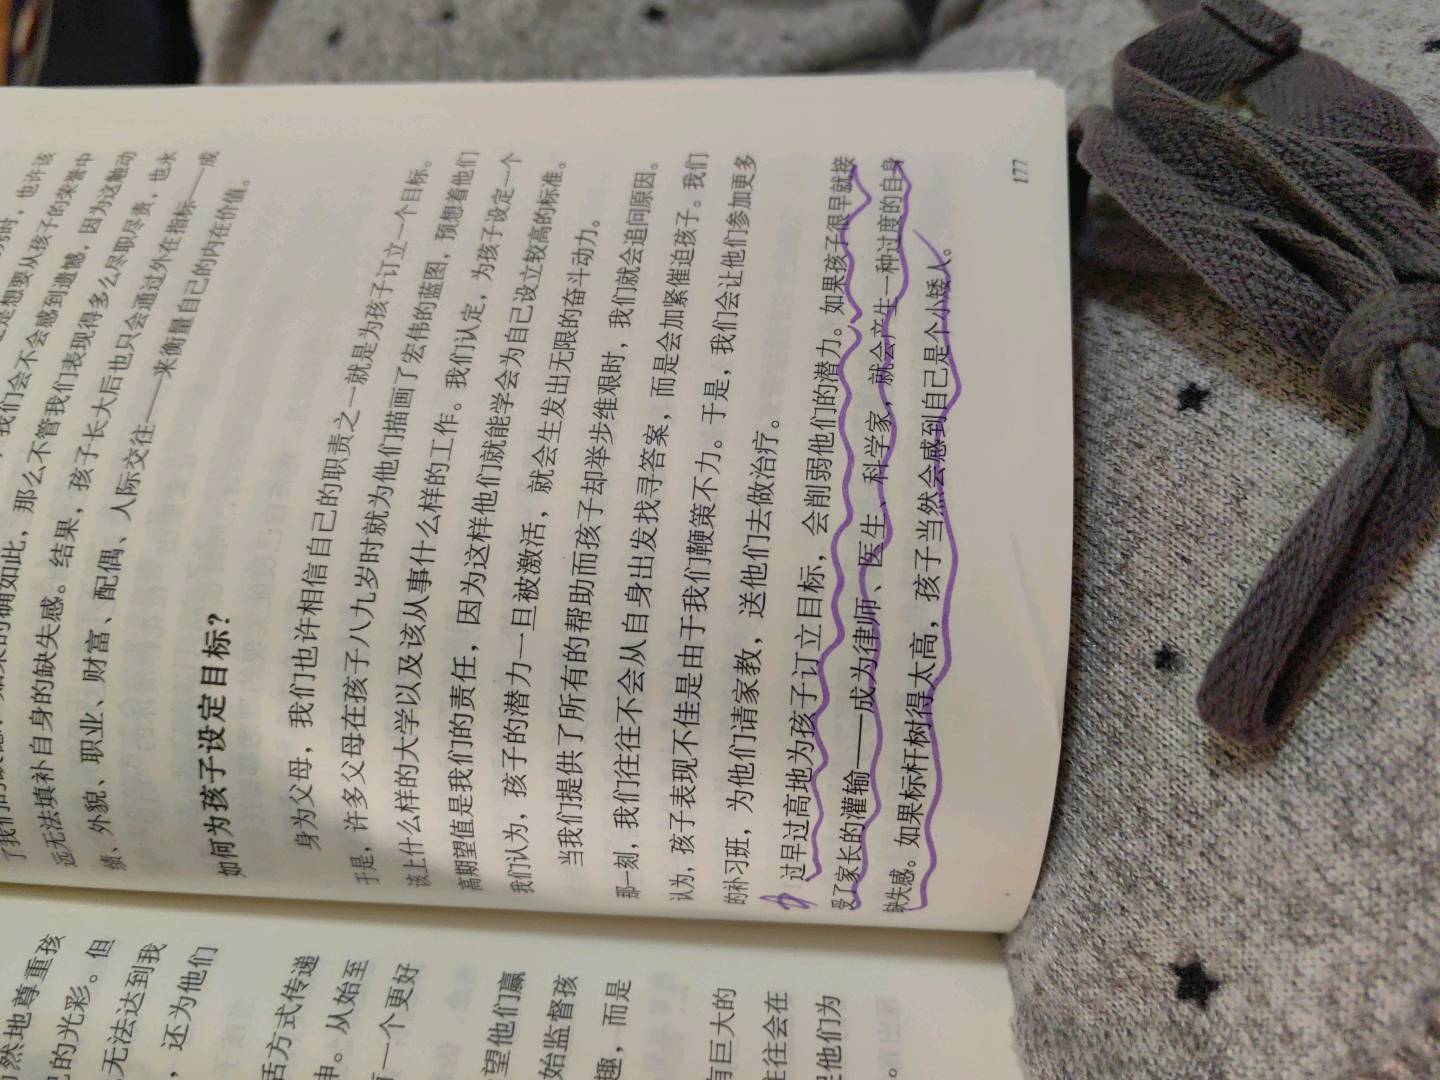 时，也许该
是想要从孩子的荣誉中
我们会不会感到遗憾，因为这触动
的确如此，那么不管我们表现得多么尽职尽责，也永
远无法填补自身的缺失感。结果，孩子长大后也只会通过外在指标——成
绩、外貌、职业、财富、配偶、人际交往——来衡量自己的内在价值。
如何为孩子设定目标？
身为父母，我们也许相信自己的职责之一就是为孩子订立一个目标。
于是，许多父母在孩子八九岁时就为他们描画了宏伟的蓝图，预想着他们
该上什么样的大学以及该从事什么样的工作。我们认定，为孩子设定一个
高期望值是我们的责任，因为这样他们就能学会为自己设立较高的标准。
我们认为，孩子的潜力一旦被激活，就会生发出无限的奋斗动力。
当我们提供了所有的帮助而孩子却举步维艰时，我们就会追问原因。
那一刻，我们往往不会从自身出发找寻答案，而是会加紧催迫孩子。我们
认为，孩子表现不佳是由于我们鞭策不力。于是，我们会让他们参加更多
的补习班，为他们请家教，送他们去做治疗。
过早过高地为孩子订立目标，会削弱他们的潜力。如果孩子很早就接
受了家长的灌输——成为律师、医生、科学家，就会产生一种过度的自身
缺失感。如果标杆树得太高，孩子当然会感到自己是个小矮人。
177
然地尊重孩
的光彩。但
无法达到我
，还为他们
活方式传递
申。从始至
一个更好
望他们赢
始监督孩
趣，而是
有巨大的
往往会在
他们为
。